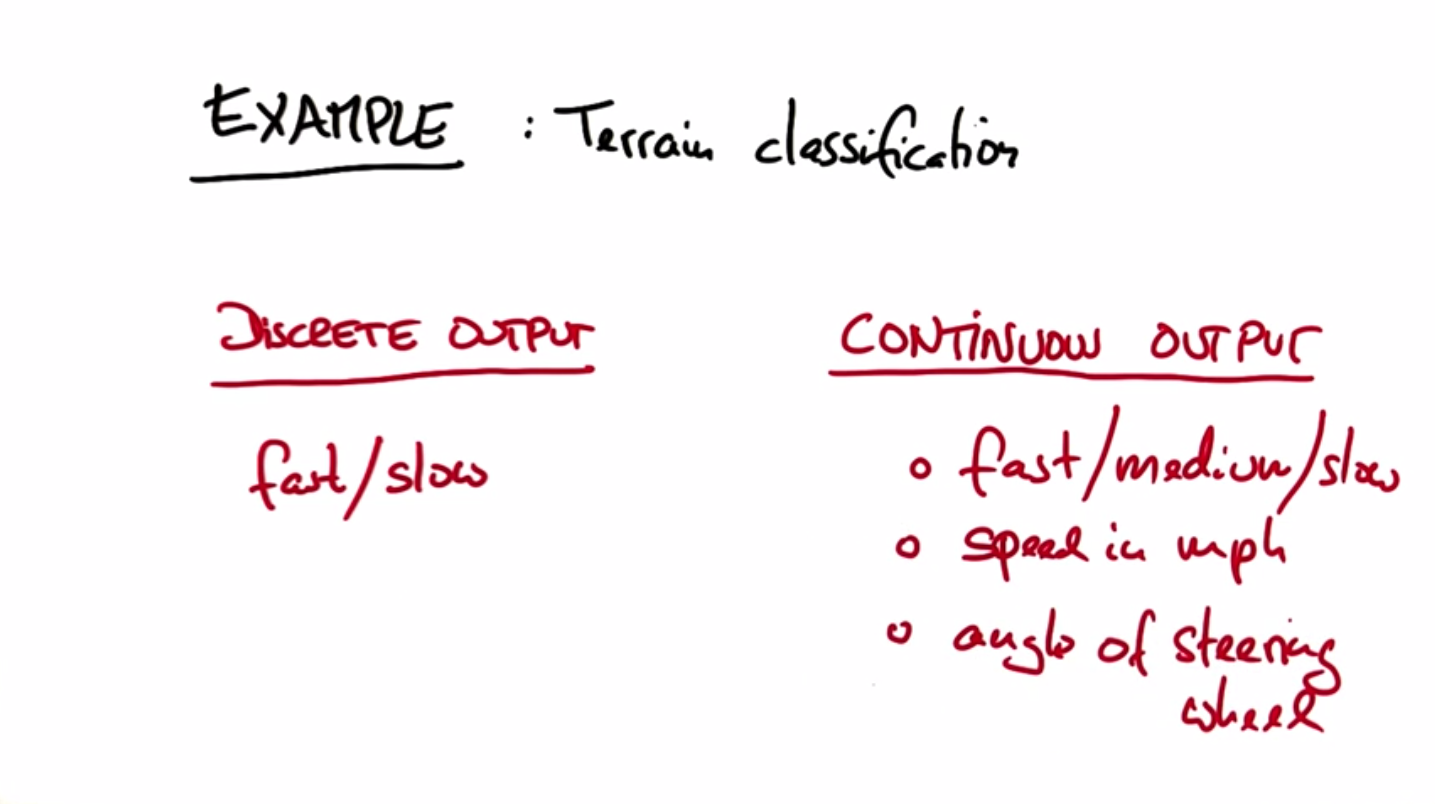 EXAMPLE : Terrain classification
DISCRETE OUTPUT
fast/slow
CONTINUOUS OUTPUT
o fast/medium/slow
o speed in mph
o angle of steering
wheel